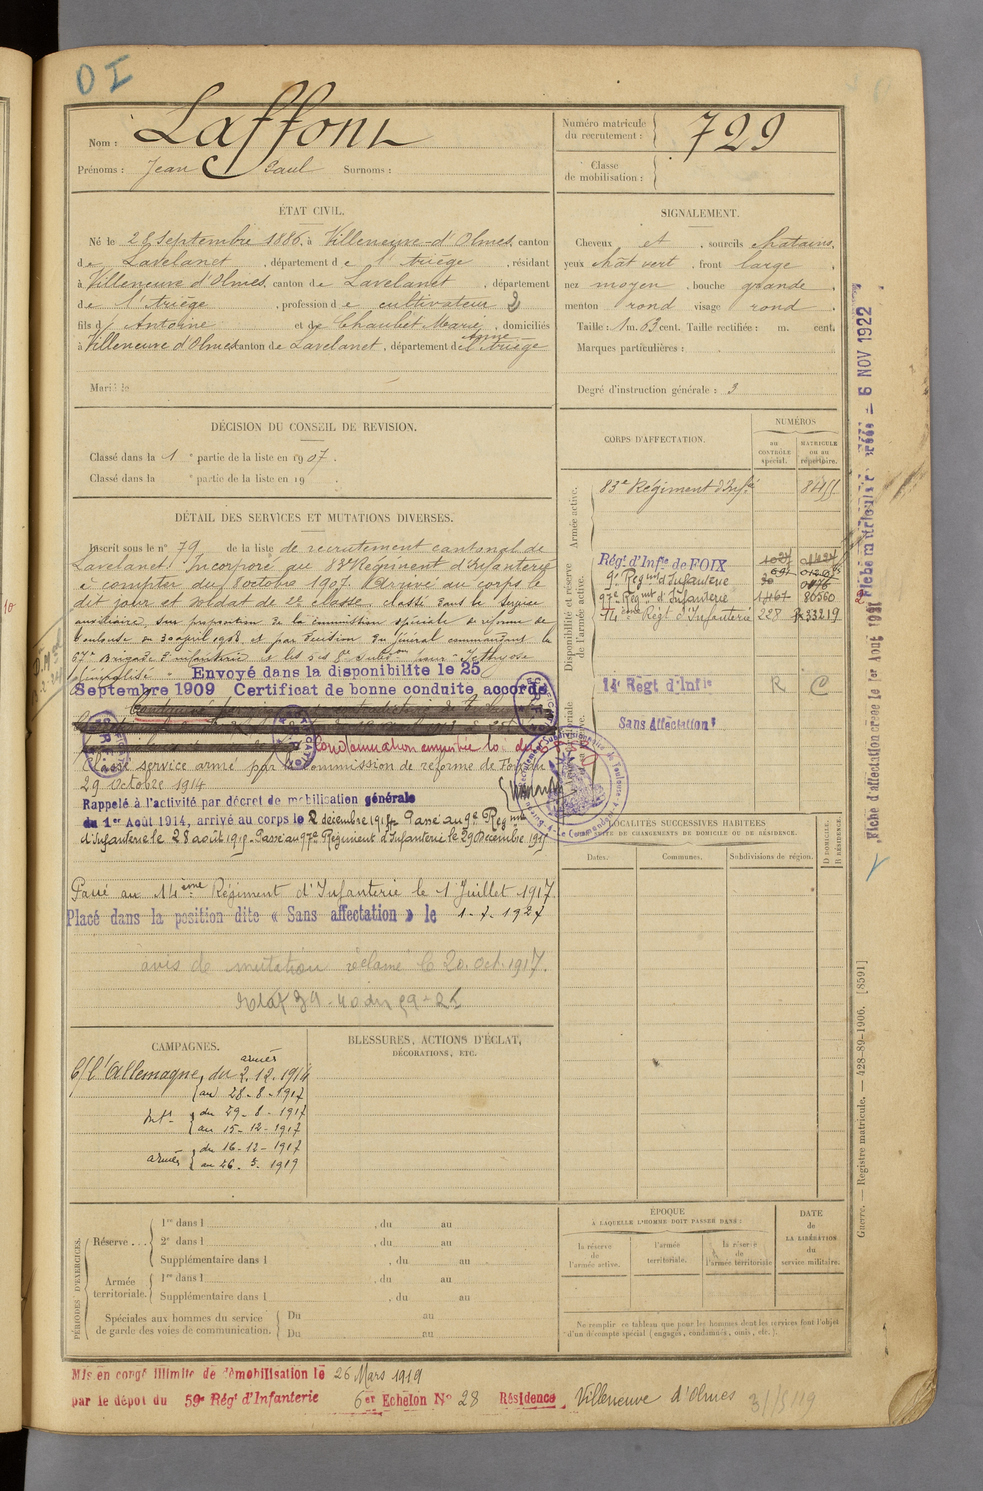 D I
Nom : Laffont
Prénoms : Jean Paul Surnoms :
Numéro matricule
du recrutement : 729
Classe
de mobilisation :
ÉTAT CIVIL.
Né le 28 Septembre 1886, à Villeneuve-d'Olmes, canton
de Lavelanet, département de l'Ariège, résidant
à Villeneuve d'Olmes, canton de Lavelanet, département
de l'Ariège, profession de cultivateur 2
fils d' Antoine et de Chaubet Marie Anne, domiciliés
à Villeneuve d'Olmes canton de Lavelanet, département de l'Ariège
Marié le
SIGNALEMENT.
Cheveux et , sourcils châtains,
yeux chât vert , front large ,
nez moyen , bouche grande ,
menton rond visage rond .
Taille : 1 m. 63 cent. Taille rectifiée : m. cent.
Marques particulières :
Degré d'instruction générale : 3
DÉCISION DU CONSEIL DE REVISION.
Classé dans la 1 e partie de la liste en 1907.
Classé dans la e partie de la liste en 19 .
DÉTAIL DES SERVICES ET MUTATIONS DIVERSES.
Inscrit sous le n° 79 de la liste de recrutement cantonal de
Lavelanet. Incorporé au 83e Régiment d'Infanterie
à compter du 8 octobre 1907. Arrivé au corps le
dit jour et soldat de 2e classe. Classé dans le service
auxiliaire, sur proposition de la commission spéciale de réforme de
Toulouse du 30 avril 1908 et par décision du Général commandant la
67e Brigade d'infanterie
Envoyé dans la disponibilité le 25
Septembre 1909 Certificat de bonne conduite accordé
Condamnation amnistiée loi du
Classé service armé par la Commission de réforme de
29 Octobre 1914
Rappelé à l'activité par décret de mobilisation générale
du 1er Août 1914, arrivé au corps le 2 décembre 1914. Passé au 9e Regiment
d'Infanterie le 28 août 1915. Passé au 97e Régiment d'Infanterie le 29 Décembre 1915
Passé au 14ème Régiment d'Infanterie le 1 Juillet 1917.
Placé dans la position dite « Sans affectation » le 1-7-1927
avis de mutation réclamé le 20 Oct. 1917.
CORPS D'AFFECTATION.
NUMÉROS
au
CONTRÔLE
spécial.
MATRICULE
ou au
répertoire.
Armée active.
83e Régiment d'Infie 8455
Disponibilité et réserve
de l'armée active.
Régt d'Infie de FOIX
9e Regmt d'Infanterie
97e Regmt d'Infanterie 1467 80560
14ème Régt d'Infanterie 228 33219
14e Régt d'Infie R C
Sans Affectation
LOCALITÉS SUCCESSIVES HABITÉES
PAR SUITE DE CHANGEMENTS DE DOMICILE OU DE RÉSIDENCE.
Dates.
Communes.
Subdivisions de région.
D DOMICILE
R RÉSIDENCE.
CAMPAGNES.
C/ l'Allemagne, armées du 2.12.1914
au 28-8-1917
Int. du 29-8-1917
au 15-12-1917
armées du 16-12-1917
au 26.3.1919
BLESSURES, ACTIONS D'ÉCLAT,
DÉCORATIONS, ETC.
PÉRIODES D'EXERCICES.
Réserve ... 1re dans l , du au
2e dans l , du au
Supplémentaire dans l , du au
Armée
territoriale. 1re dans l , du au
Supplémentaire dans l , du au
Spéciales aux hommes du service
de garde des voies de communication. Du au
Du au
ÉPOQUE
À LAQUELLE L'HOMME DOIT PASSER DANS :
la réserve
de
l'armée active.
l'armée
territoriale.
la réserve
de
l'armée territoriale
DATE
de
LA LIBÉRATION
du
service militaire.
Ne remplir ce tableau que pour les hommes dont les services font l'objet
d'un décompte spécial (engagés, condamnés, omis, etc.).
Mis en congé illimité de démobilisation le 26 Mars 1919
par le dépôt du 59e Régt d'Infanterie 6er Echelon N° 28 Résidence Villeneuve d'Olmes
Fiche d'affectation créée le 1er Août 1921
Fiche matriculaire créée - 6 NOV 1922
Guerre. — Registre matricule. — 428-89-1906. [8591]